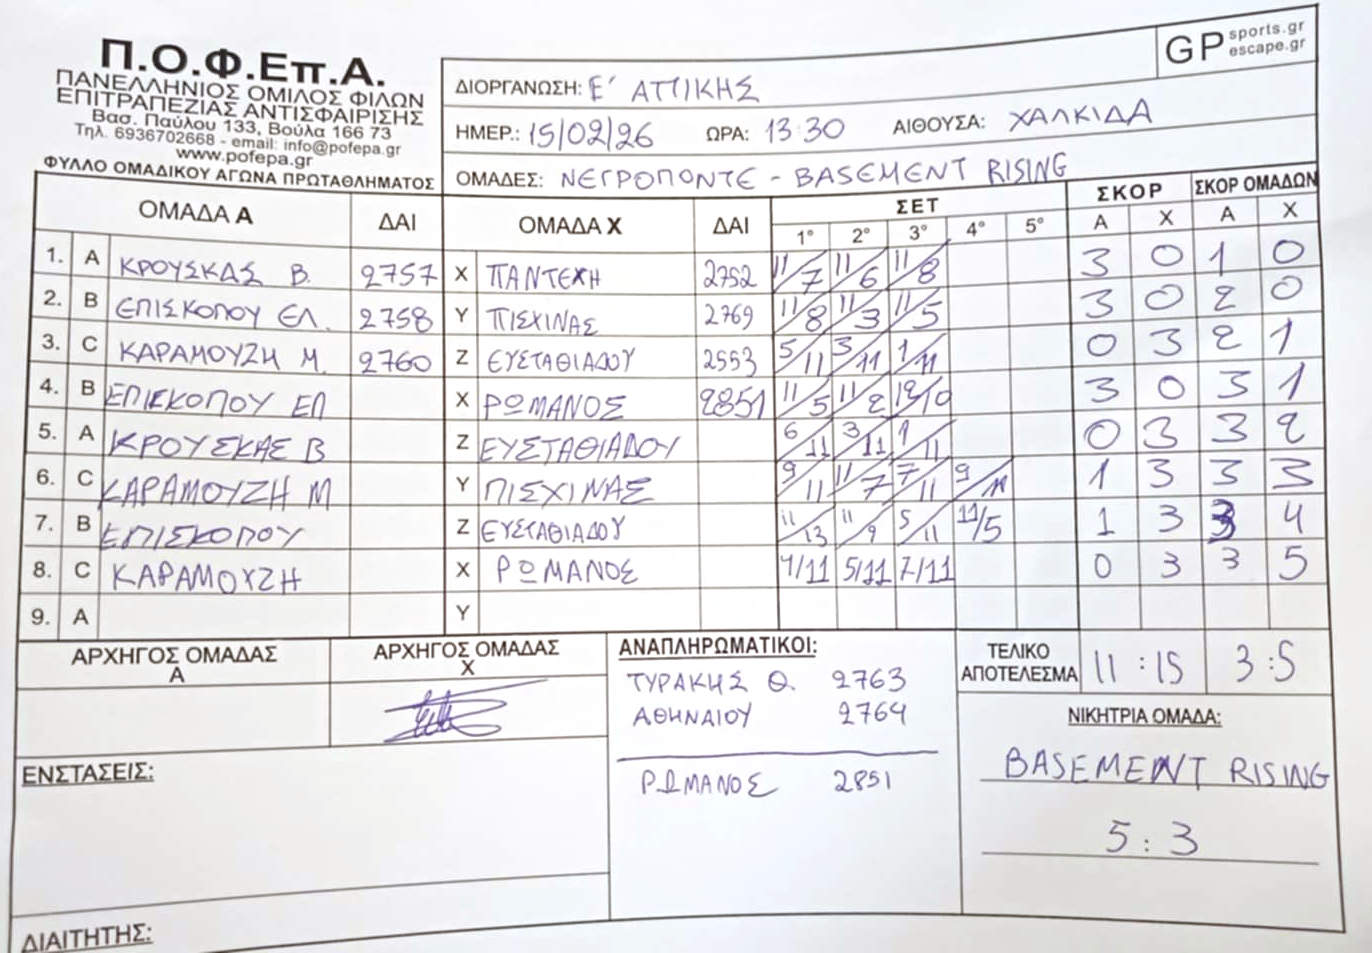 Π.Ο.Φ.Επ.Α.
ΠΑΝΕΛΛΗΝΙΟΣ ΟΜΙΛΟΣ ΦΙΛΩΝ
ΕΠΙΤΡΑΠΕΖΙΑΣ ΑΝΤΙΣΦΑΙΡΙΣΗΣ
Βασ. Παύλου 133, Βούλα 166 73
Τηλ. 6936702668 - email: info@pofepa.gr
www.pofepa.gr
ΦΥΛΛΟ ΟΜΑΔΙΚΟΥ ΑΓΩΝΑ ΠΡΩΤΑΘΛΗΜΑΤΟΣ
GP sports.gr
escape.gr
ΔΙΟΡΓΑΝΩΣΗ: Ε΄ ΑΤΤΙΚΗΣ
ΗΜΕΡ.: 15/02/26 ΩΡΑ: 13:30 ΑΙΘΟΥΣΑ: ΧΑΛΚΙΔΑ
ΟΜΑΔΕΣ: ΝΕΓΡΟΠΟΝΤΕ - BASEMENT RISING
ΟΜΑΔΑ Α ΔΑΙ ΟΜΑΔΑ Χ ΔΑΙ ΣΕΤ ΣΚΟΡ ΣΚΟΡ ΟΜΑΔΩΝ
1° 2° 3° 4° 5° Α Χ Α Χ
1. A ΚΡΟΥΣΚΑΣ Β. 2757 X ΠΑΝΤΕΧΗ 2752 11/7 11/6 11/8 3 0 1 0
2. B ΕΠΙΣΚΟΠΟΥ ΕΛ. 2758 Y ΠΙΣΧΙΝΑΣ 2769 11/8 11/3 11/5 3 0 2 0
3. C ΚΑΡΑΜΟΥΖΗ Μ. 2760 Z ΕΥΣΤΑΘΙΑΔΟΥ 2553 5/11 3/11 1/11 0 3 2 1
4. B ΕΠΙΣΚΟΠΟΥ ΕΛ X ΡΩΜΑΝΟΣ 2851 11/5 11/2 12/10 3 0 3 1
5. A ΚΡΟΥΣΚΑΣ Β Z ΕΥΣΤΑΘΙΑΔΟΥ 6/11 3/11 1/11 0 3 3 2
6. C ΚΑΡΑΜΟΥΖΗ Μ Y ΠΙΣΧΙΝΑΣ 9/11 11/7 7/11 9/11 1 3 3 3
7. B ΕΠΙΣΚΟΠΟΥ Z ΕΥΣΤΑΘΙΑΔΟΥ 11/13 11/9 5/11 11/5 1 3 3 4
8. C ΚΑΡΑΜΟΥΖΗ X ΡΩΜΑΝΟΣ 4/11 5/11 7/11 0 3 3 5
9. A Y
ΑΡΧΗΓΟΣ ΟΜΑΔΑΣ Α
ΑΡΧΗΓΟΣ ΟΜΑΔΑΣ Χ
ΑΝΑΠΛΗΡΩΜΑΤΙΚΟΙ:
ΤΥΡΑΚΗΣ Θ. 2763
ΑΘΗΝΑΙΟΥ 2764
ΡΩΜΑΝΟΣ 2851
ΤΕΛΙΚΟ ΑΠΟΤΕΛΕΣΜΑ 11 : 15 3 : 5
ΝΙΚΗΤΡΙΑ ΟΜΑΔΑ:
BASEMENT RISING
5 : 3
ΕΝΣΤΑΣΕΙΣ:
ΔΙΑΙΤΗΤΗΣ: